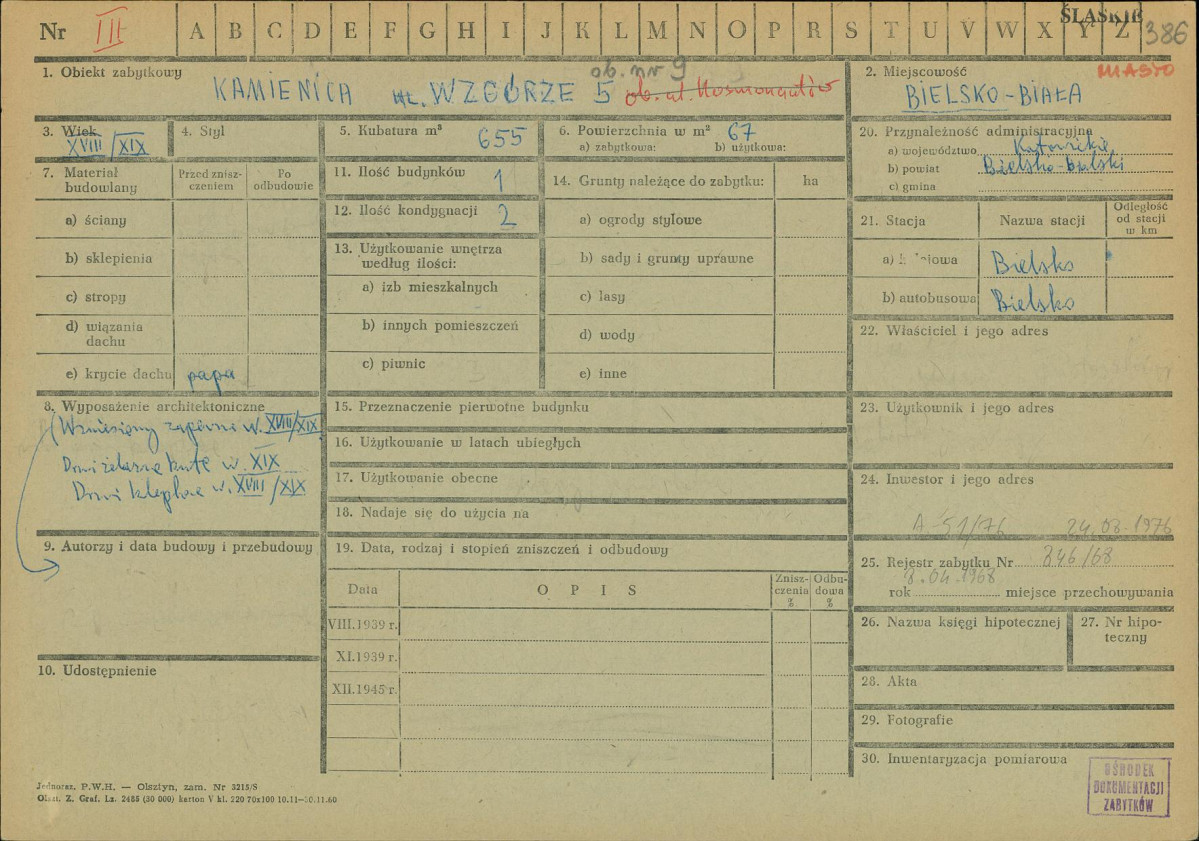 Nr III A B C D E F G H I J K L M N O P R S T U V W X Y Z ŚLĄSKIE 386
1. Obiekt zabytkowy KAMIENICA ul. WZGÓRZE 5 ob. nr 9 ob. ul. Kosmonautów
2. Miejscowość MIASTO
BIELSKO-BIAŁA
3. Wiek
XVIII/XIX
4. Styl
5. Kubatura m³ 655
6. Powierzchnia w m² 67
a) zabytkowa: b) użytkowa:
20. Przynależność administracyjna
a) województwo Katowickie
b) powiat Bielsko-bialski
c) gmina
7. Materiał budowlany
Przed zniszczeniem
Po odbudowie
a) ściany
b) sklepienia
c) stropy
d) wiązania dachu
e) krycie dachu papa
11. Ilość budynków 1
12. Ilość kondygnacji 2
13. Użytkowanie wnętrza
według ilości:
a) izb mieszkalnych
b) innych pomieszczeń
c) piwnic
14. Grunty należące do zabytku: ha
a) ogrody stylowe
b) sady i grunty uprawne
c) lasy
d) wody
e) inne
21. Stacja Nazwa stacji Odległość od stacji w km
a) kolejowa Bielsko
b) autobusowa Bielsko
22. Właściciel i jego adres
8. Wyposażenie architektoniczne
(Wzniesiony zapewne w. XVIII/XIX
Drzwi żelazne kute w. XIX
Drzwi klepkowe w. XVIII/XIX
9. Autorzy i data budowy i przebudowy
10. Udostępnienie
15. Przeznaczenie pierwotne budynku
16. Użytkowanie w latach ubiegłych
17. Użytkowanie obecne
18. Nadaje się do użycia na
19. Data, rodzaj i stopień zniszczeń i odbudowy
Data OPIS Zniszczenia % Odbudowa %
VIII.1939 r.
XI.1939 r.
XII.1945 r.
23. Użytkownik i jego adres
24. Inwestor i jego adres
A-51/76 24.08.1976
25. Rejestr zabytku Nr 846/68
8.04.1968
rok miejsce przechowywania
26. Nazwa księgi hipotecznej
27. Nr hipoteczny
28. Akta
29. Fotografie
30. Inwentaryzacja pomiarowa
OŚRODEK
DOKUMENTACJI
ZABYTKÓW
Jednoraz. P.W.H. — Olsztyn, zam. Nr 3215/S
Olszt. Z. Graf. Lz. 2485 (30 000) karton V kl. 220 70x100 10.11—30.11.60